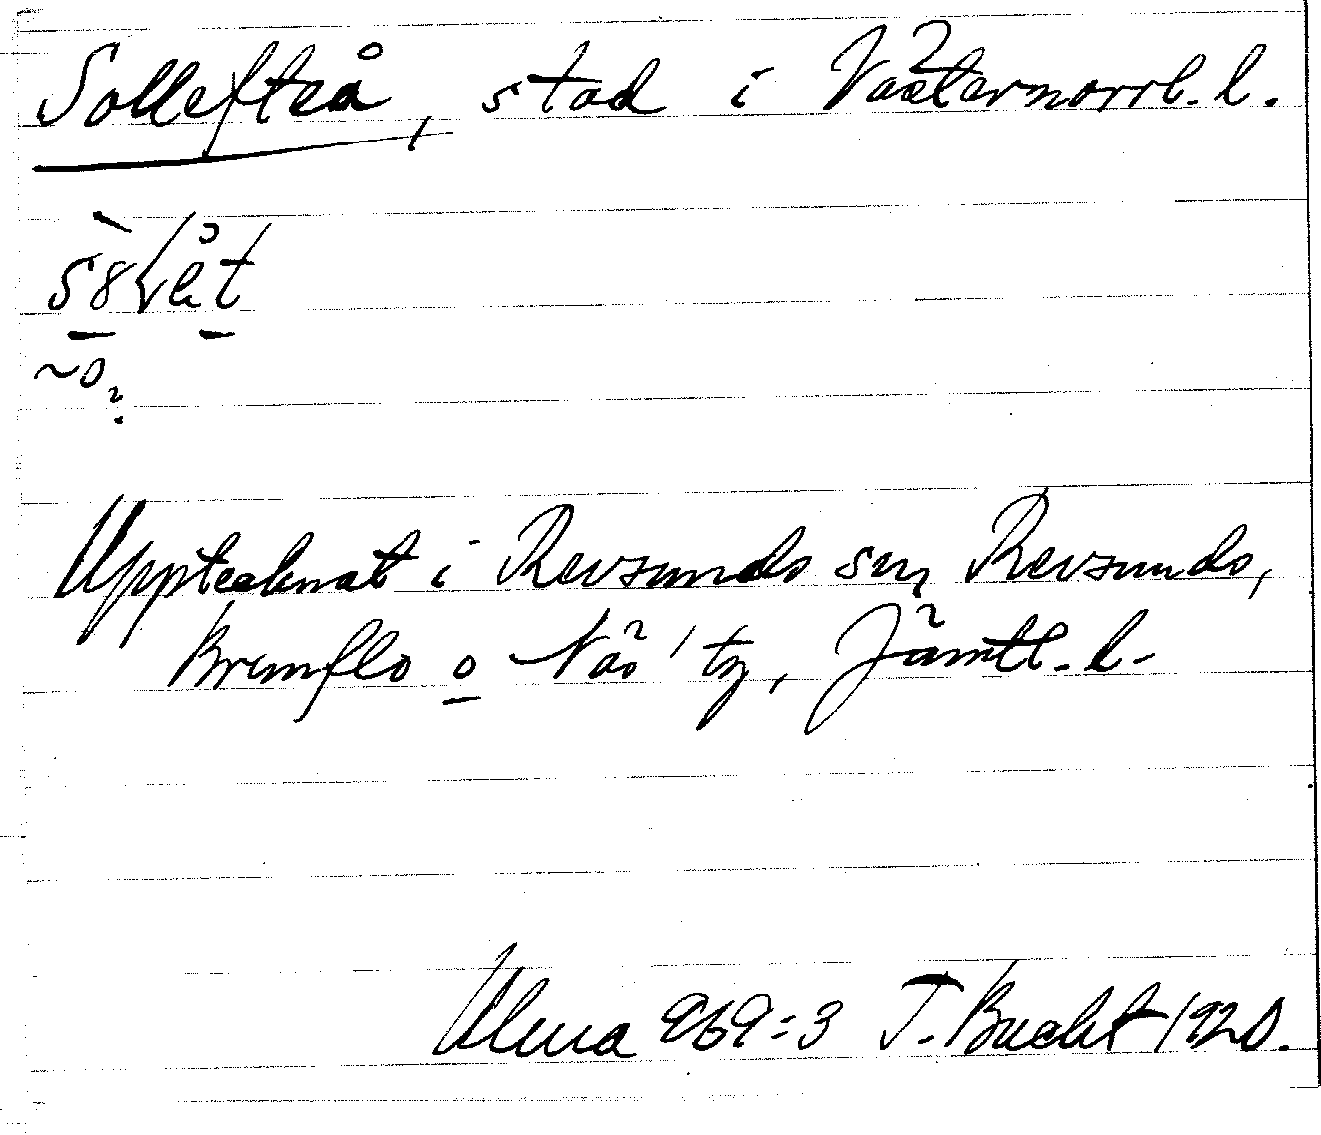 Sollefteå, stad i Västernorrl. l.
Upptecknat i Revsunds sn, Revsunds,
Brunflo o Näs' tg, Jämtl. l.
Ulma 969:3 T. Bucht 1920.